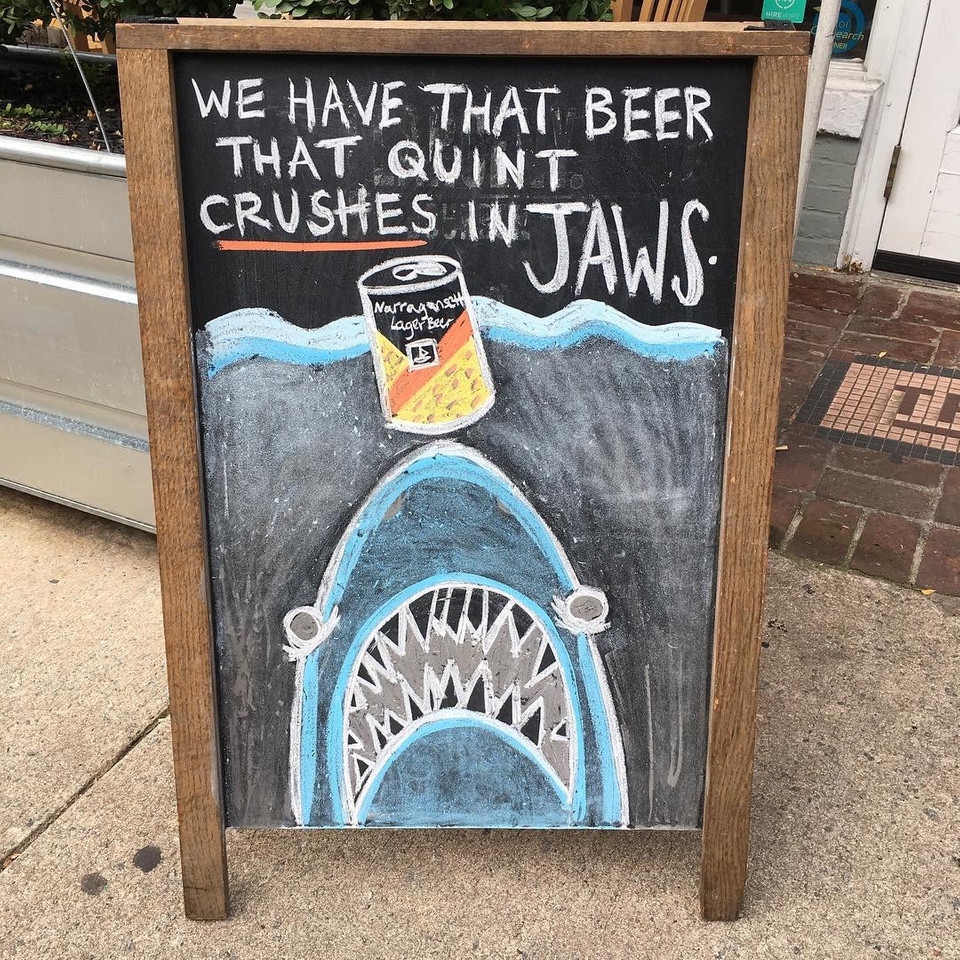 WE HAVE THAT BEER
THAT QUINT
CRUSHES IN JAWS.
Narragansett
Lager Beer
HIREWIRE